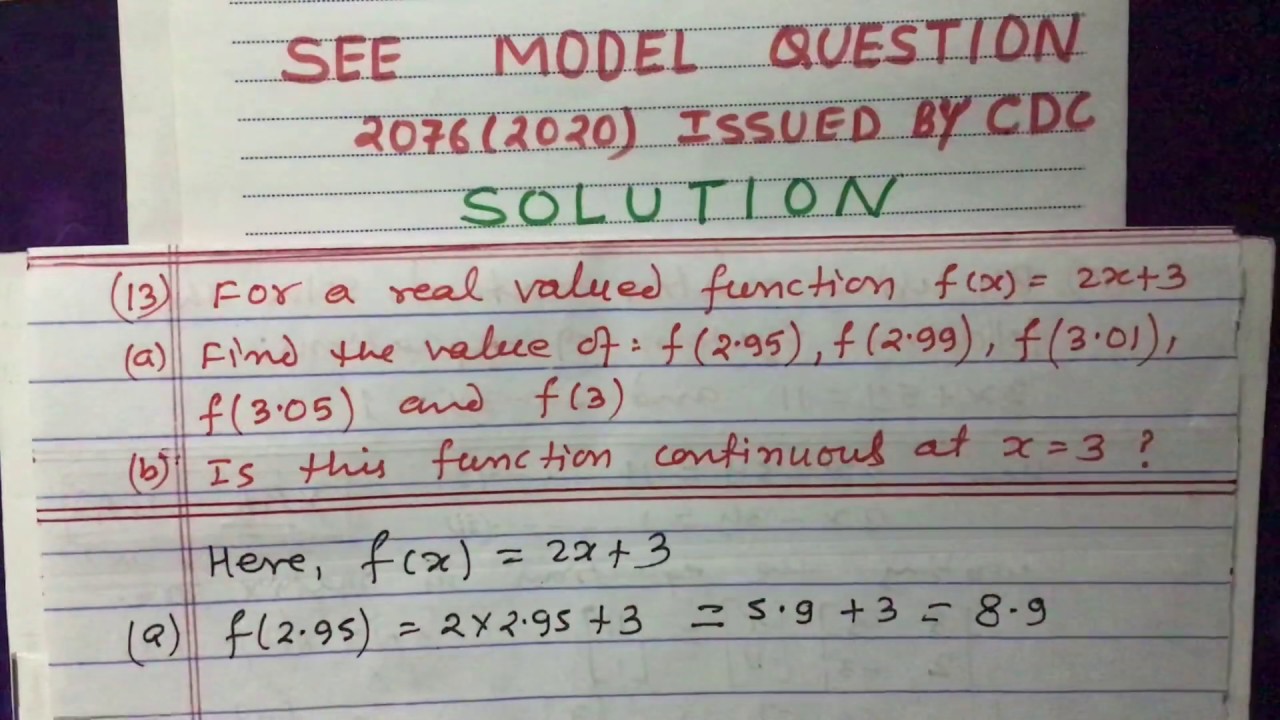 SEE MODEL QUESTION
2076(2020) ISSUED BY CDC
SOLUTION
(13) For a real valued function f(x) = 2x+3
(a) Find the value of: f(2.95), f(2.99), f(3.01),
f(3.05) and f(3)
(b) Is this function continuous at x=3?
Here, f(x) = 2x+3
(a) f(2.95) = 2×2.95+3 = 5.9+3 = 8.9